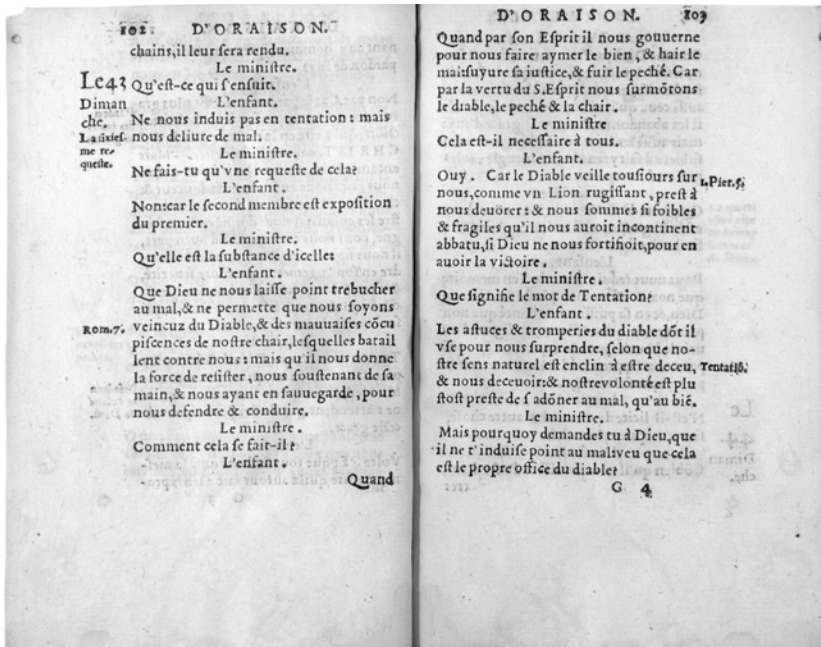 102 D'ORAISON.
chains,il leur ſera rendu.
Le miniſtre.
Le 43 Qu'eſt-ce qui ſ'enſuit.
Diman L'enfant.
che. Ne nous induis pas en tentation : mais
La ſixieſ- nous deliure de mal.
me re- Le miniſtre.
queſte. Ne fais-tu qu'vne requeſte de cela?
L'enfant.
Non:car le ſecond membre eſt expoſition
du premier.
Le miniſtre.
Qu'elle eſt la ſubſtance d'icelle:
L'enfant.
Que Dieu ne nous laiſſe point trebucher
au mal,& ne permette que nous ſoyons
Rom.7. veincuz du Diable,& des mauuaiſes cōcu
piſcences de noſtre chair,leſquelles batail
lent contre nous : mais qu'il nous donne
la force de reſiſter , nous ſouſtenant de ſa
main,& nous ayant en ſauuegarde , pour
nous defendre & conduire.
Le miniſtre.
Comment cela ſe fait-il?
L'enfant.
Quand
D'ORAISON. 103
Quand par ſon Eſprit il nous gouuerne
pour nous faire aymer le bien , & hair le
mal:ſuyure ſa iuſtice,& fuir le peché. Car
par la vertu du S.Eſprit nous ſurmōtons
le diable,le peché & la chair.
Le miniſtre
Cela eſt-il neceſſaire à tous.
L'enfant.
Ouy . Car le Diable veille touſiours ſur 1.Pier.5.
nous,comme vn Lion rugiſſant , preſt à
nous deuorer : & nous ſommes ſi foibles
& fragiles qu'il nous auroit incontinent
abbatu,ſi Dieu ne nous fortifioit,pour en
auoir la victoire .
Le miniſtre .
Que ſignifie le mot de Tentation?
L'enfant .
Les aſtuces & tromperies du diable dōt il
vſe pour nous ſurprendre, ſelon que no-
ſtre ſens naturel eſt enclin à eſtre deceu, Tentatiō.
& nous deceuoir:& noſtre volonté eſt plu
ſtoſt preſte de ſ'adōner au mal, qu'au biē.
Le miniſtre.
Mais pourquoy demandes tu à Dieu,que
il ne t'induiſe point au mal:veu que cela
eſt le propre office du diable?
G 4